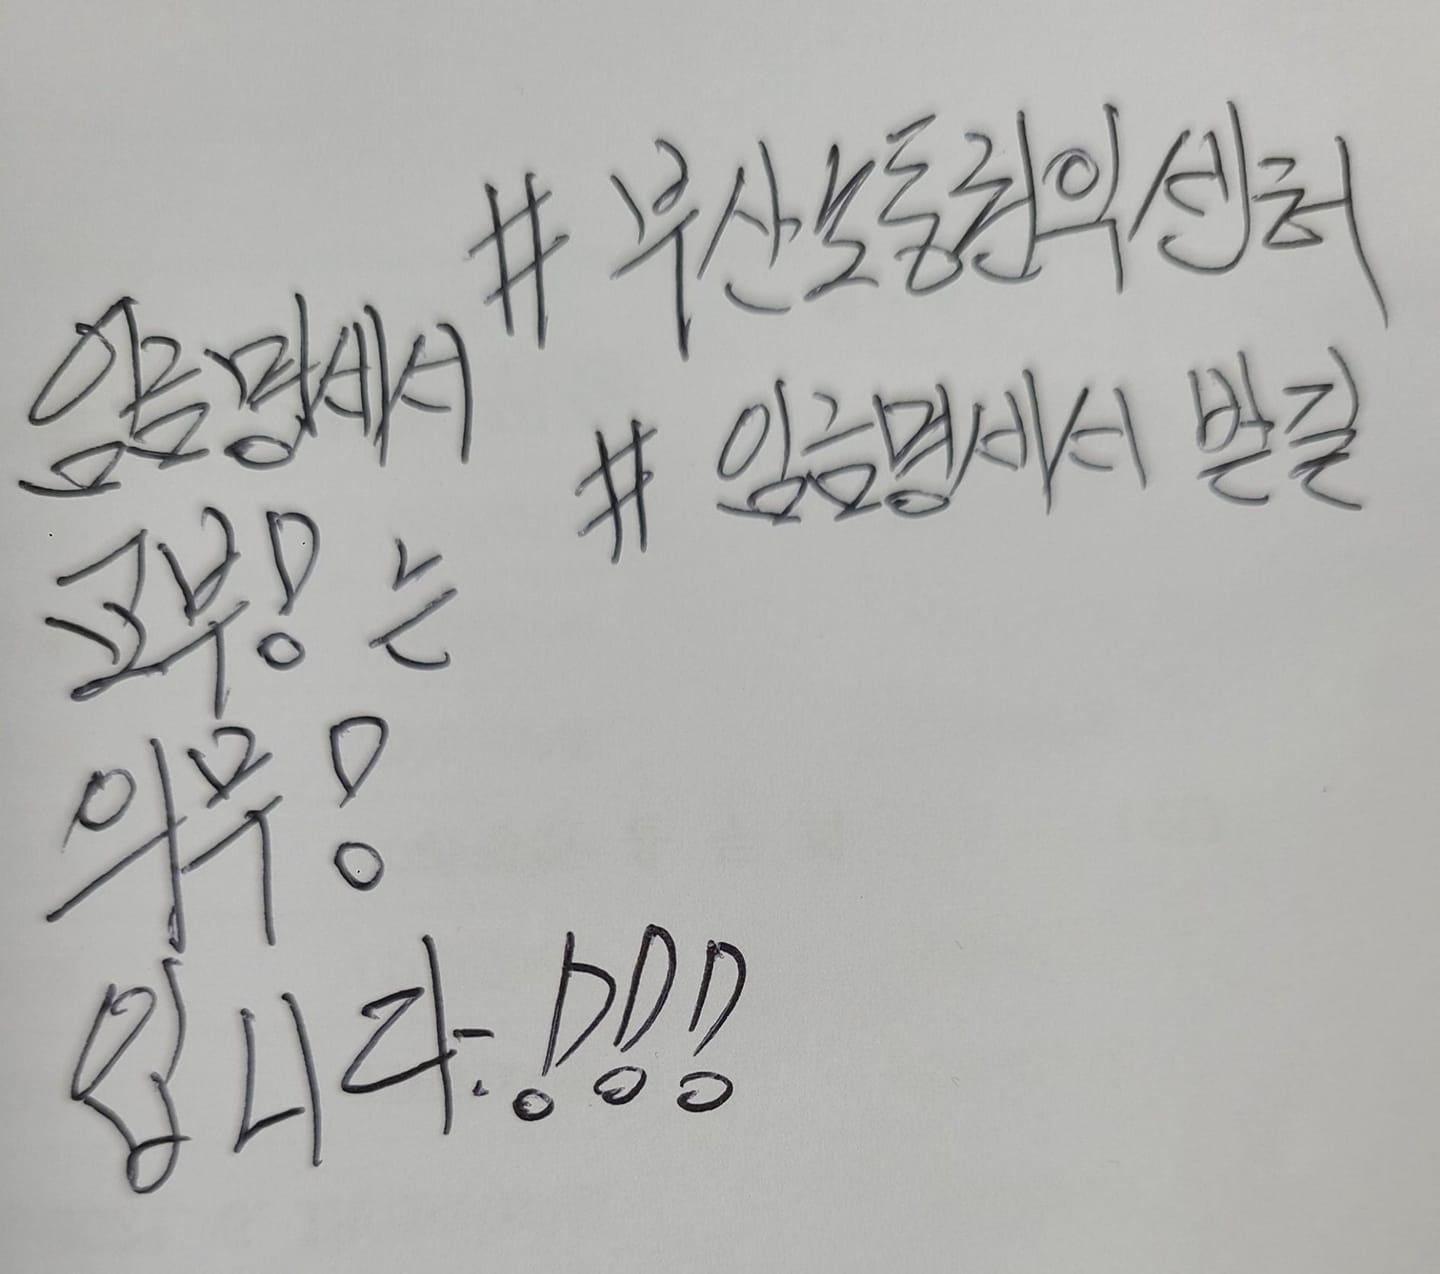 #부산노동권익센터
#임금명세서 받길
임금명세서
교부! 는
의무!
입니다.!!!